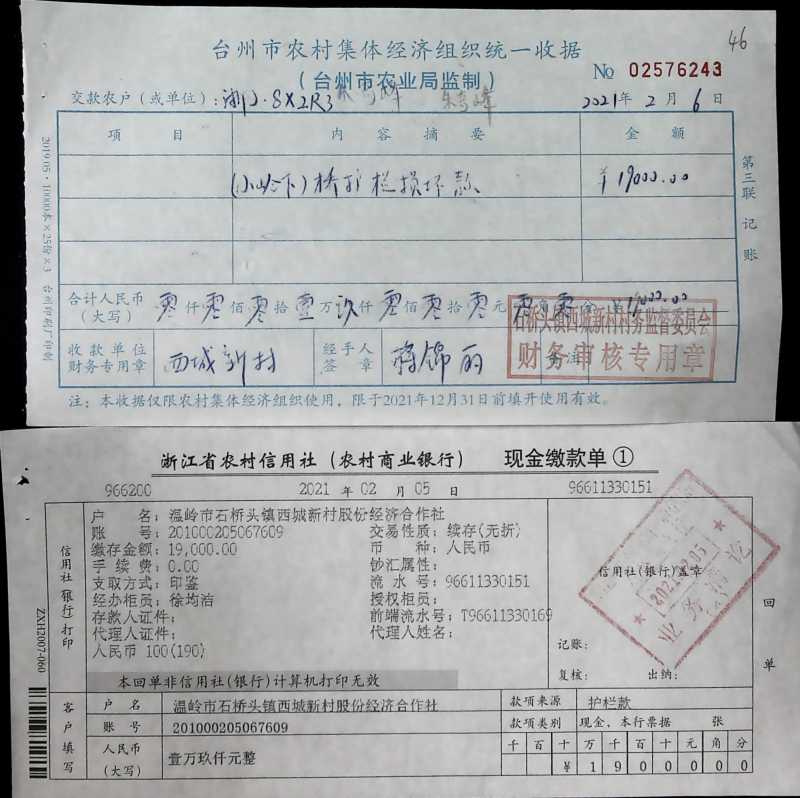 46
台州市农村集体经济组织统一收据
(台州市农业局监制)
No 02576243
交款农户(或单位): 浙J·8X2R3
2021年 2 月 6 日
项 目 内 容 摘 要 金 额
(小岭下)桥护栏损坏款 ¥19000.00
合计人民币(大写) 零仟零佰零拾壹万玖仟零佰零拾零元零角零分 ¥19000.00
收款单位财务专用章 西城新村 经手人签章 蒋锦丽 备注
石桥头镇西城新村村务监督委员会
财务审核专用章
注:本收据仅限农村集体经济组织使用,限于2021年12月31日前填开使用有效。
第三联 记账
2019.05·10000本×25份×3 台州印刷厂印制
浙江省农村信用社(农村商业银行) 现金缴款单①
966200 2021 年 02 月 05 日 96611330151
户 名:温岭市石桥头镇西城新村股份经济合作社
账 号:201000205067609 交易性质:续存(无折)
缴存金额:19,000.00 币 种:人民币
手 续 费:0.00 钞汇属性:
支取方式:印鉴 流 水 号:96611330151
经办柜员:徐均洁 授权柜员:
存款人证件: 前端流水号:T96611330169
代理人证件: 代理人姓名:
人民币 100(190)
本回单非信用社(银行)计算机打印无效
信用社(银行)打印
信用社(银行)盖章
2021.02.05
记账:
复核: 出纳:
回单
ZXH2007-060
客户填写
户 名 温岭市石桥头镇西城新村股份经济合作社 款项来源 护栏款
账 号 201000205067609 款项类别 现金、本行票据 张
人民币(大写) 壹万玖仟元整 千百十万千百十元角分
¥1900000